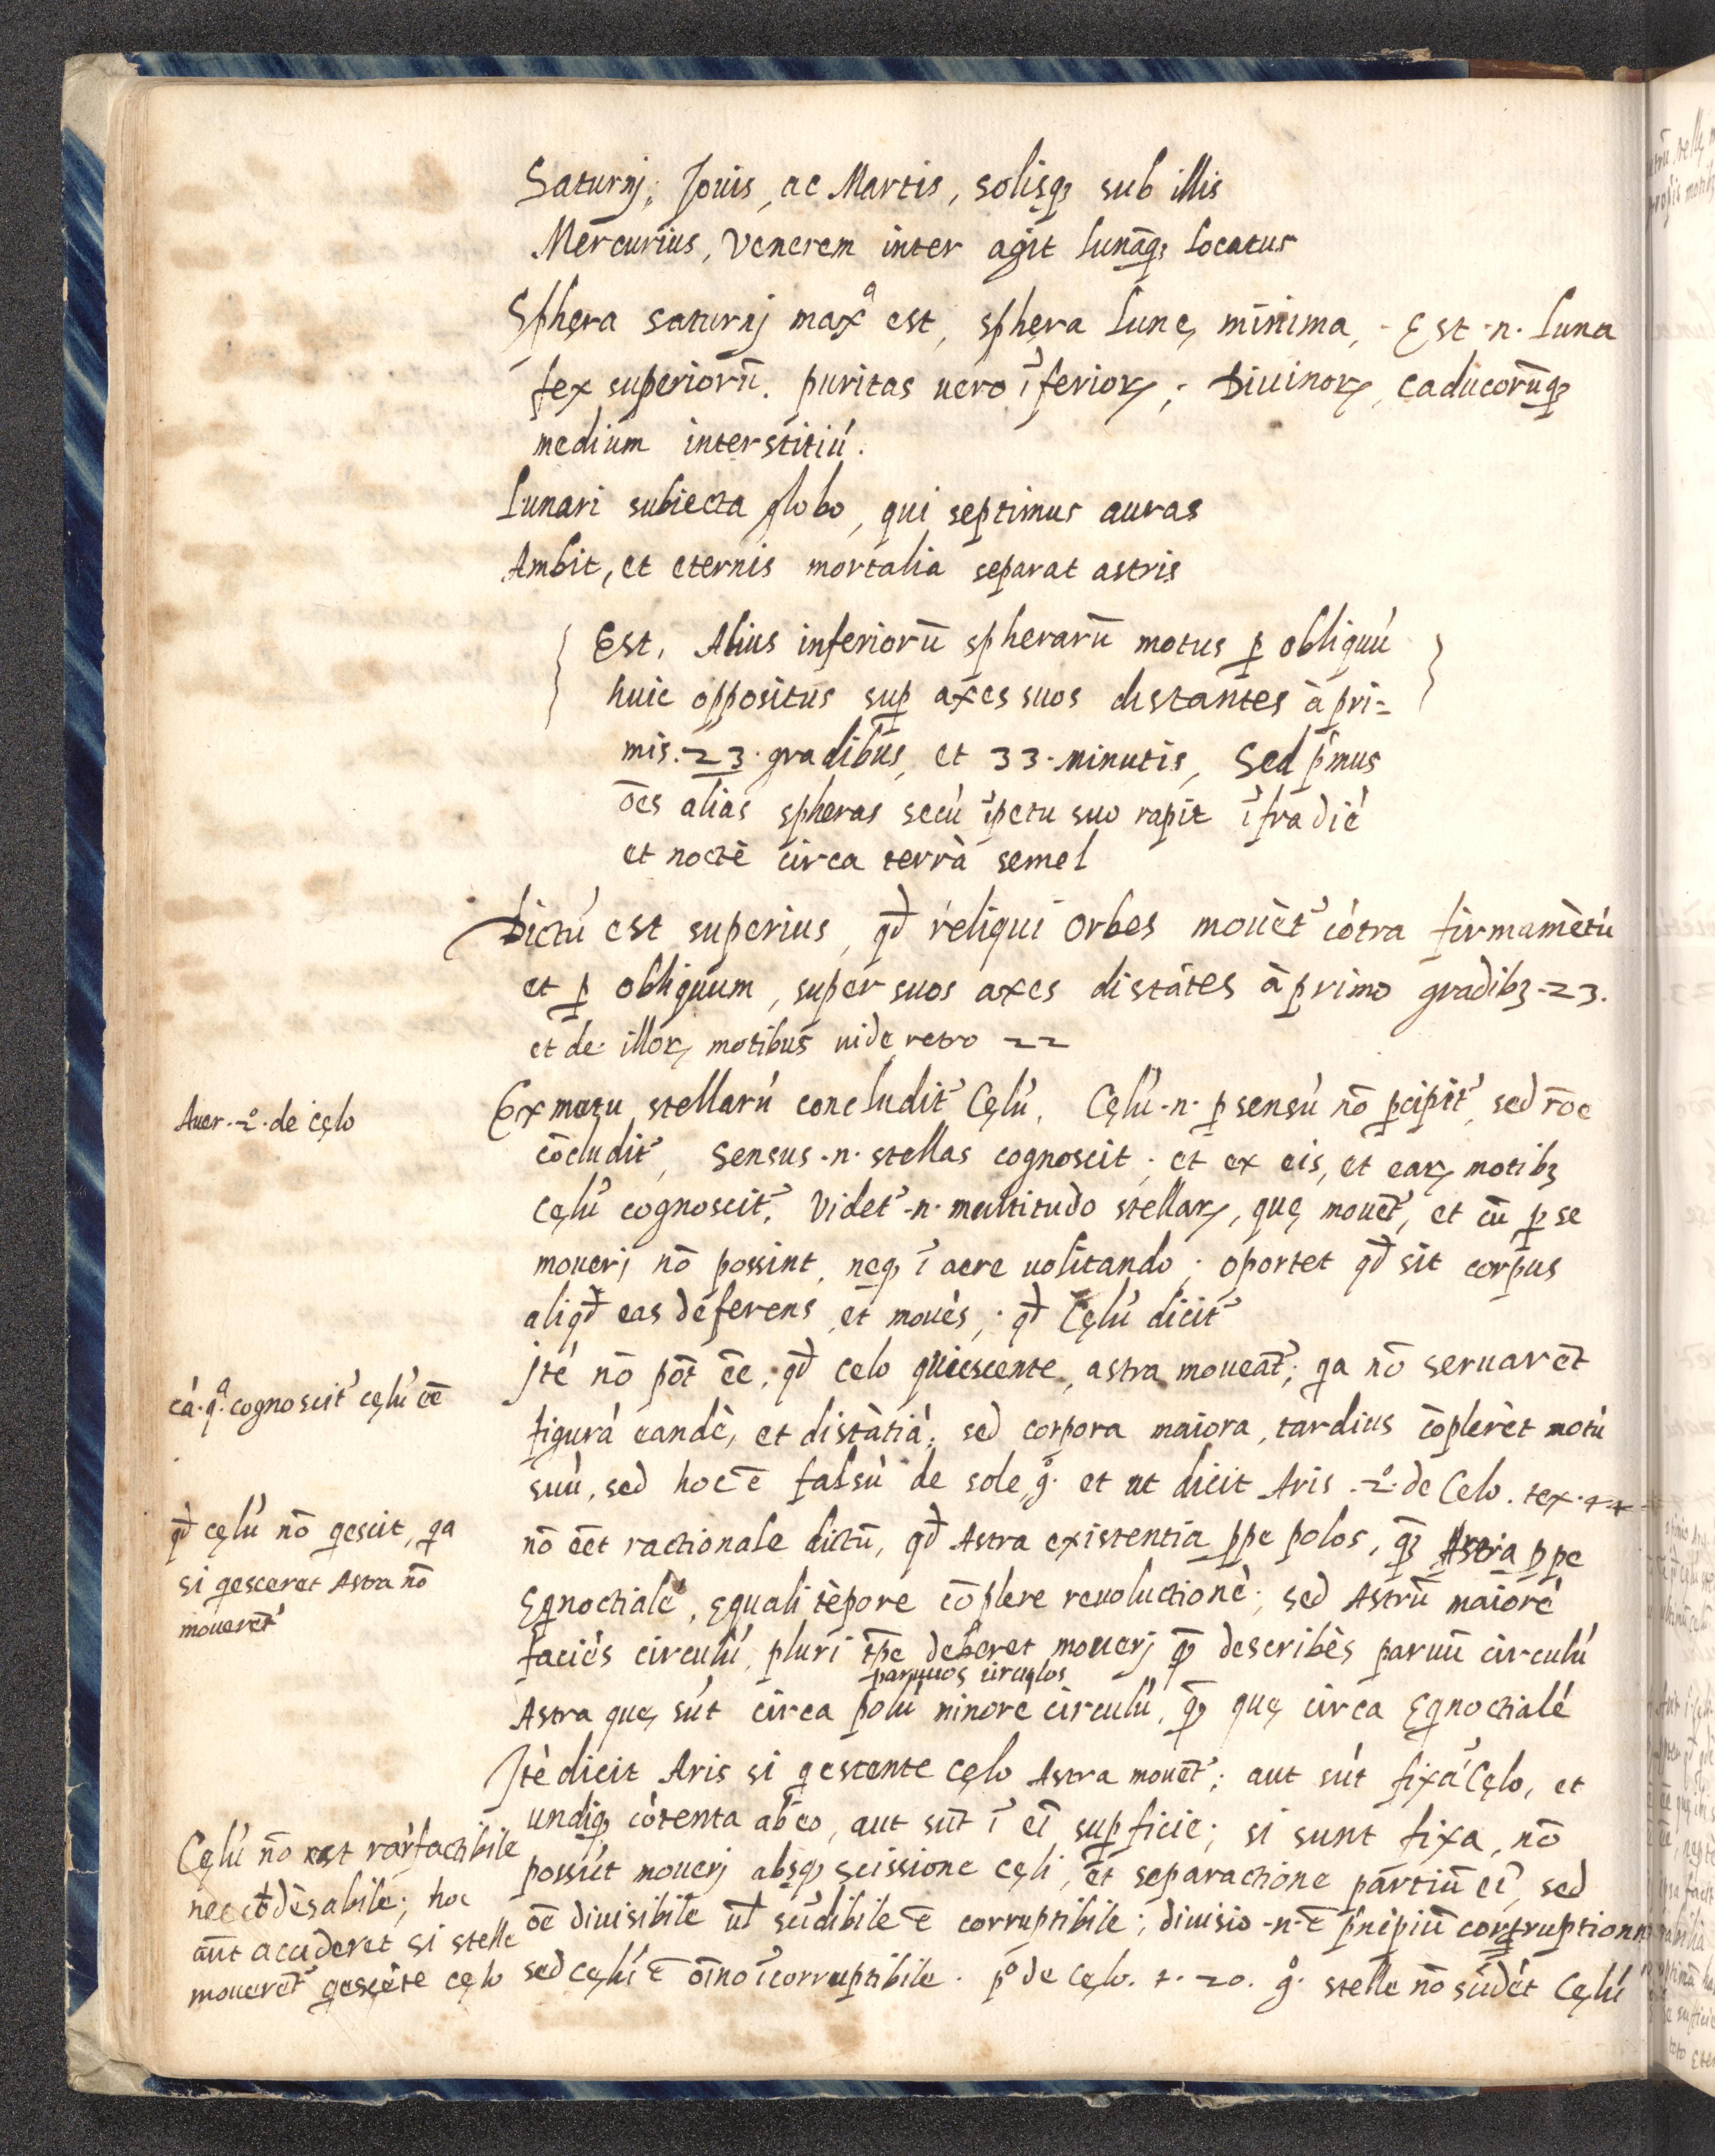 Saturnj, Jouis, ac Martis, solisq; sub illis
Mercurius, Venerem inter agit lunāq; locatus
Sphęra saturnj maxᵃ est, sphęra lunę minima, Est .n. luna
fex superiorū. puritas uero īferioꝝ; Diuinoꝝ, caducorūq;
medium interstitiū.
Lunari subiecta globo, qui septimus auras
Ambit, et eternis mortalia separat astris
Est, Alius inferiorū spherarū motus ꝑ obliquū
huic oppositus suꝑ axes suos distantes à pri=
mis .23. gradibus, et 33. minutis, Sed p̄mus
ōes alias spheras secū īpetu suo rapit īfra diē
et noctē circa terrā semel
Dictū est superius, qđ reliqui orbes mouēt᾽ cōtra firmamētū
et ꝑ obliquum, super suos axes distātes à primo gradibꝫ .23.
et de illoꝝ motibus uide retro 22
Auer. 2º. de cęlo
Ex motu stellarū concludit᾽ Cęlū. Cęlū .n. ꝑ sensū nō ꝑcipit᾽, sed rōe
cōcludit᾽, Sensus .n. stellas cognoscit; et ex eis, et eaꝝ motibꝫ
Cęlū cognoscit᾽. Videt᾽ .n. multitudo stellaꝝ, quę mouēt᾽, et cū ꝑ se
mouerj nō possint, neqꝫ ī aere uolitando; oportet qđ sit corpus
aliqđ eas deferens, et mouēs; qđ Cęlū dicit᾽
cā. qᵃ. cognoscit᾽ cęlū ēē
Jtē nō pōt ēe, qđ celo quiescente, astra moueāt᾽; qa nō seruarēt
figurā eandē, et distātiā; sed corpora maiora, tardius cōplerēt motū
suū, sed hoc ē falsū de sole, gº. et ut dicit Aris. 2º. de Celo. tex.
qđ cęlū nō qescit, qa
si qesceret Astra nō
mouerēt᾽
nō ēēt rationale dictū, qđ Astra existentia ꝓpe polos, qꝫ Astra ꝓpe
Ęqnoctialē, ęquali tēpore cōplere reuolutionē; sed Astrū maiorē
faciēs circulū, pluri tp̄e deberet mouerj qꝫ describēs paruū circulū
paruuos circulos
Astra quę sūt circa polū minorē circulū, qꝫ quę circa Ęqnoctialē
Jtē dicit Aris si qescente cęlo Astra mouēt᾽; aut sūt fixa ī Cęlo, et
undiqꝫ cōtenta ab eo, aut sūt ī eī suꝑficie; si sunt fixa, nō
possūt mouerj absqꝫ scissione cęli, et separatione partiū eī, sed
ōē diuisibile ul scīdibile ē corruptibile; diuisio .n. ē p̄ncipiū corruptionis
sed cęlū ē oīno īcorruptibile. pº de cęlo. t. 20. gº. stelle nō scīdēt Cęlū
Cęlū nō est rarfactibile
nec cōdēsabile; hoc
aūt accideret si stelle
mouerēt᾽ qescēte cęlo